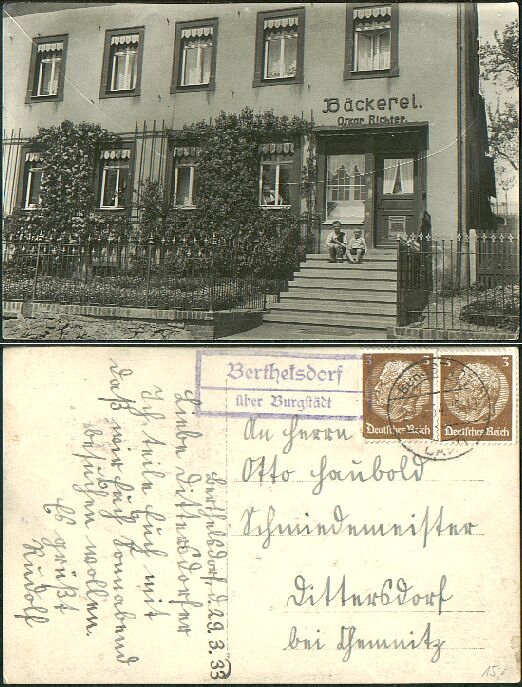 Bäckerei.
Oskar Richter.
Berthelsdorf
über Burgstädt
3 3
Deutsches Reich Deutsches Reich
An Herrn
Otto Haubold
Schmiedemeister
Dittersdorf
bei Chemnitz
Berthelsdorf, d. 29.3.33
Liebe Dittersdorfer
Ich teile Euch mit
daß wir Euch Sonnabend
besuchen wollen.
Es grüßt
Rudolf
15,-